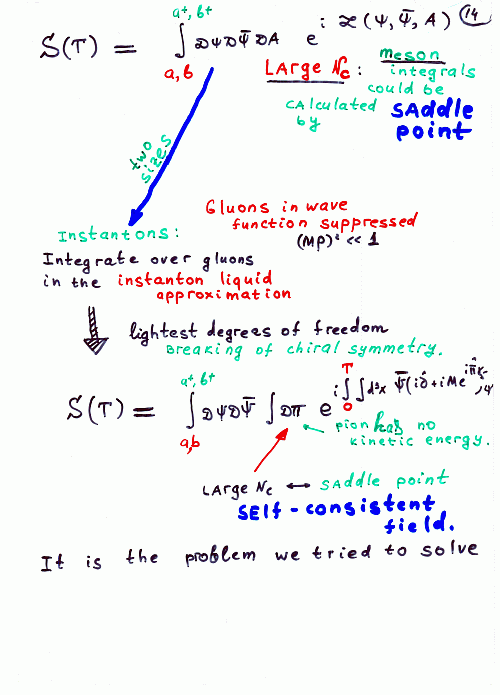 14
a⁺, b⁺
S(T) = ∫ DΨDΨ̄ DA e^{i ℒ(Ψ, Ψ̄, A)}
a, b
LArge Nc : meson
integrals
could be
CAlculated
by SAddle
point
two
sizes
Gluons in wave
function suppressed
(Mρ)² << 1
Instantons:
Integrate over gluons
in the instanton liquid
approximation
lightest degrees of freedom
Breaking of chiral symmetry.
a⁺, b⁺
S(T) = ∫ DΨDΨ̄ ∫Dπ e
a,b
T
0
pion has no
kinetic energy.
LArge Nc ↔ SAddle point
SElf-consistent
field.
It is the problem we tried to solve